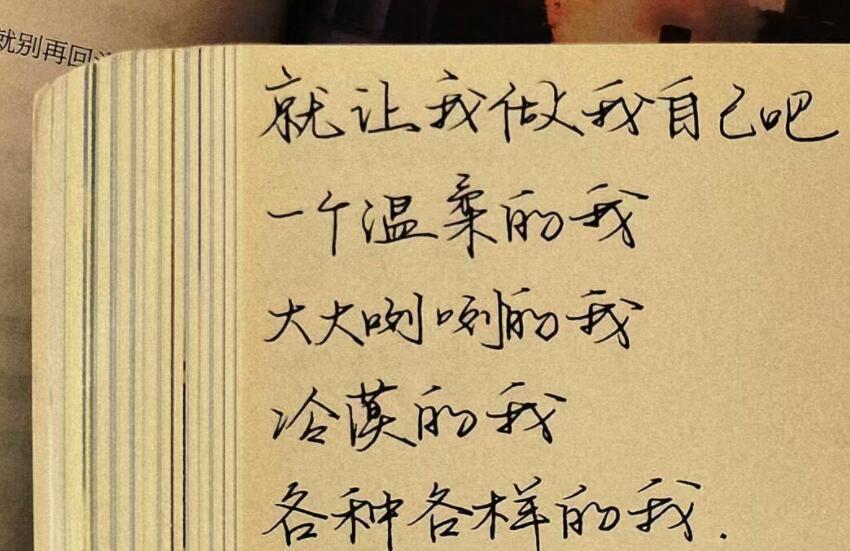 就别再回
就让我做我自己吧
一个温柔的我
大大咧咧的我
冷漠的我
各种各样的我.